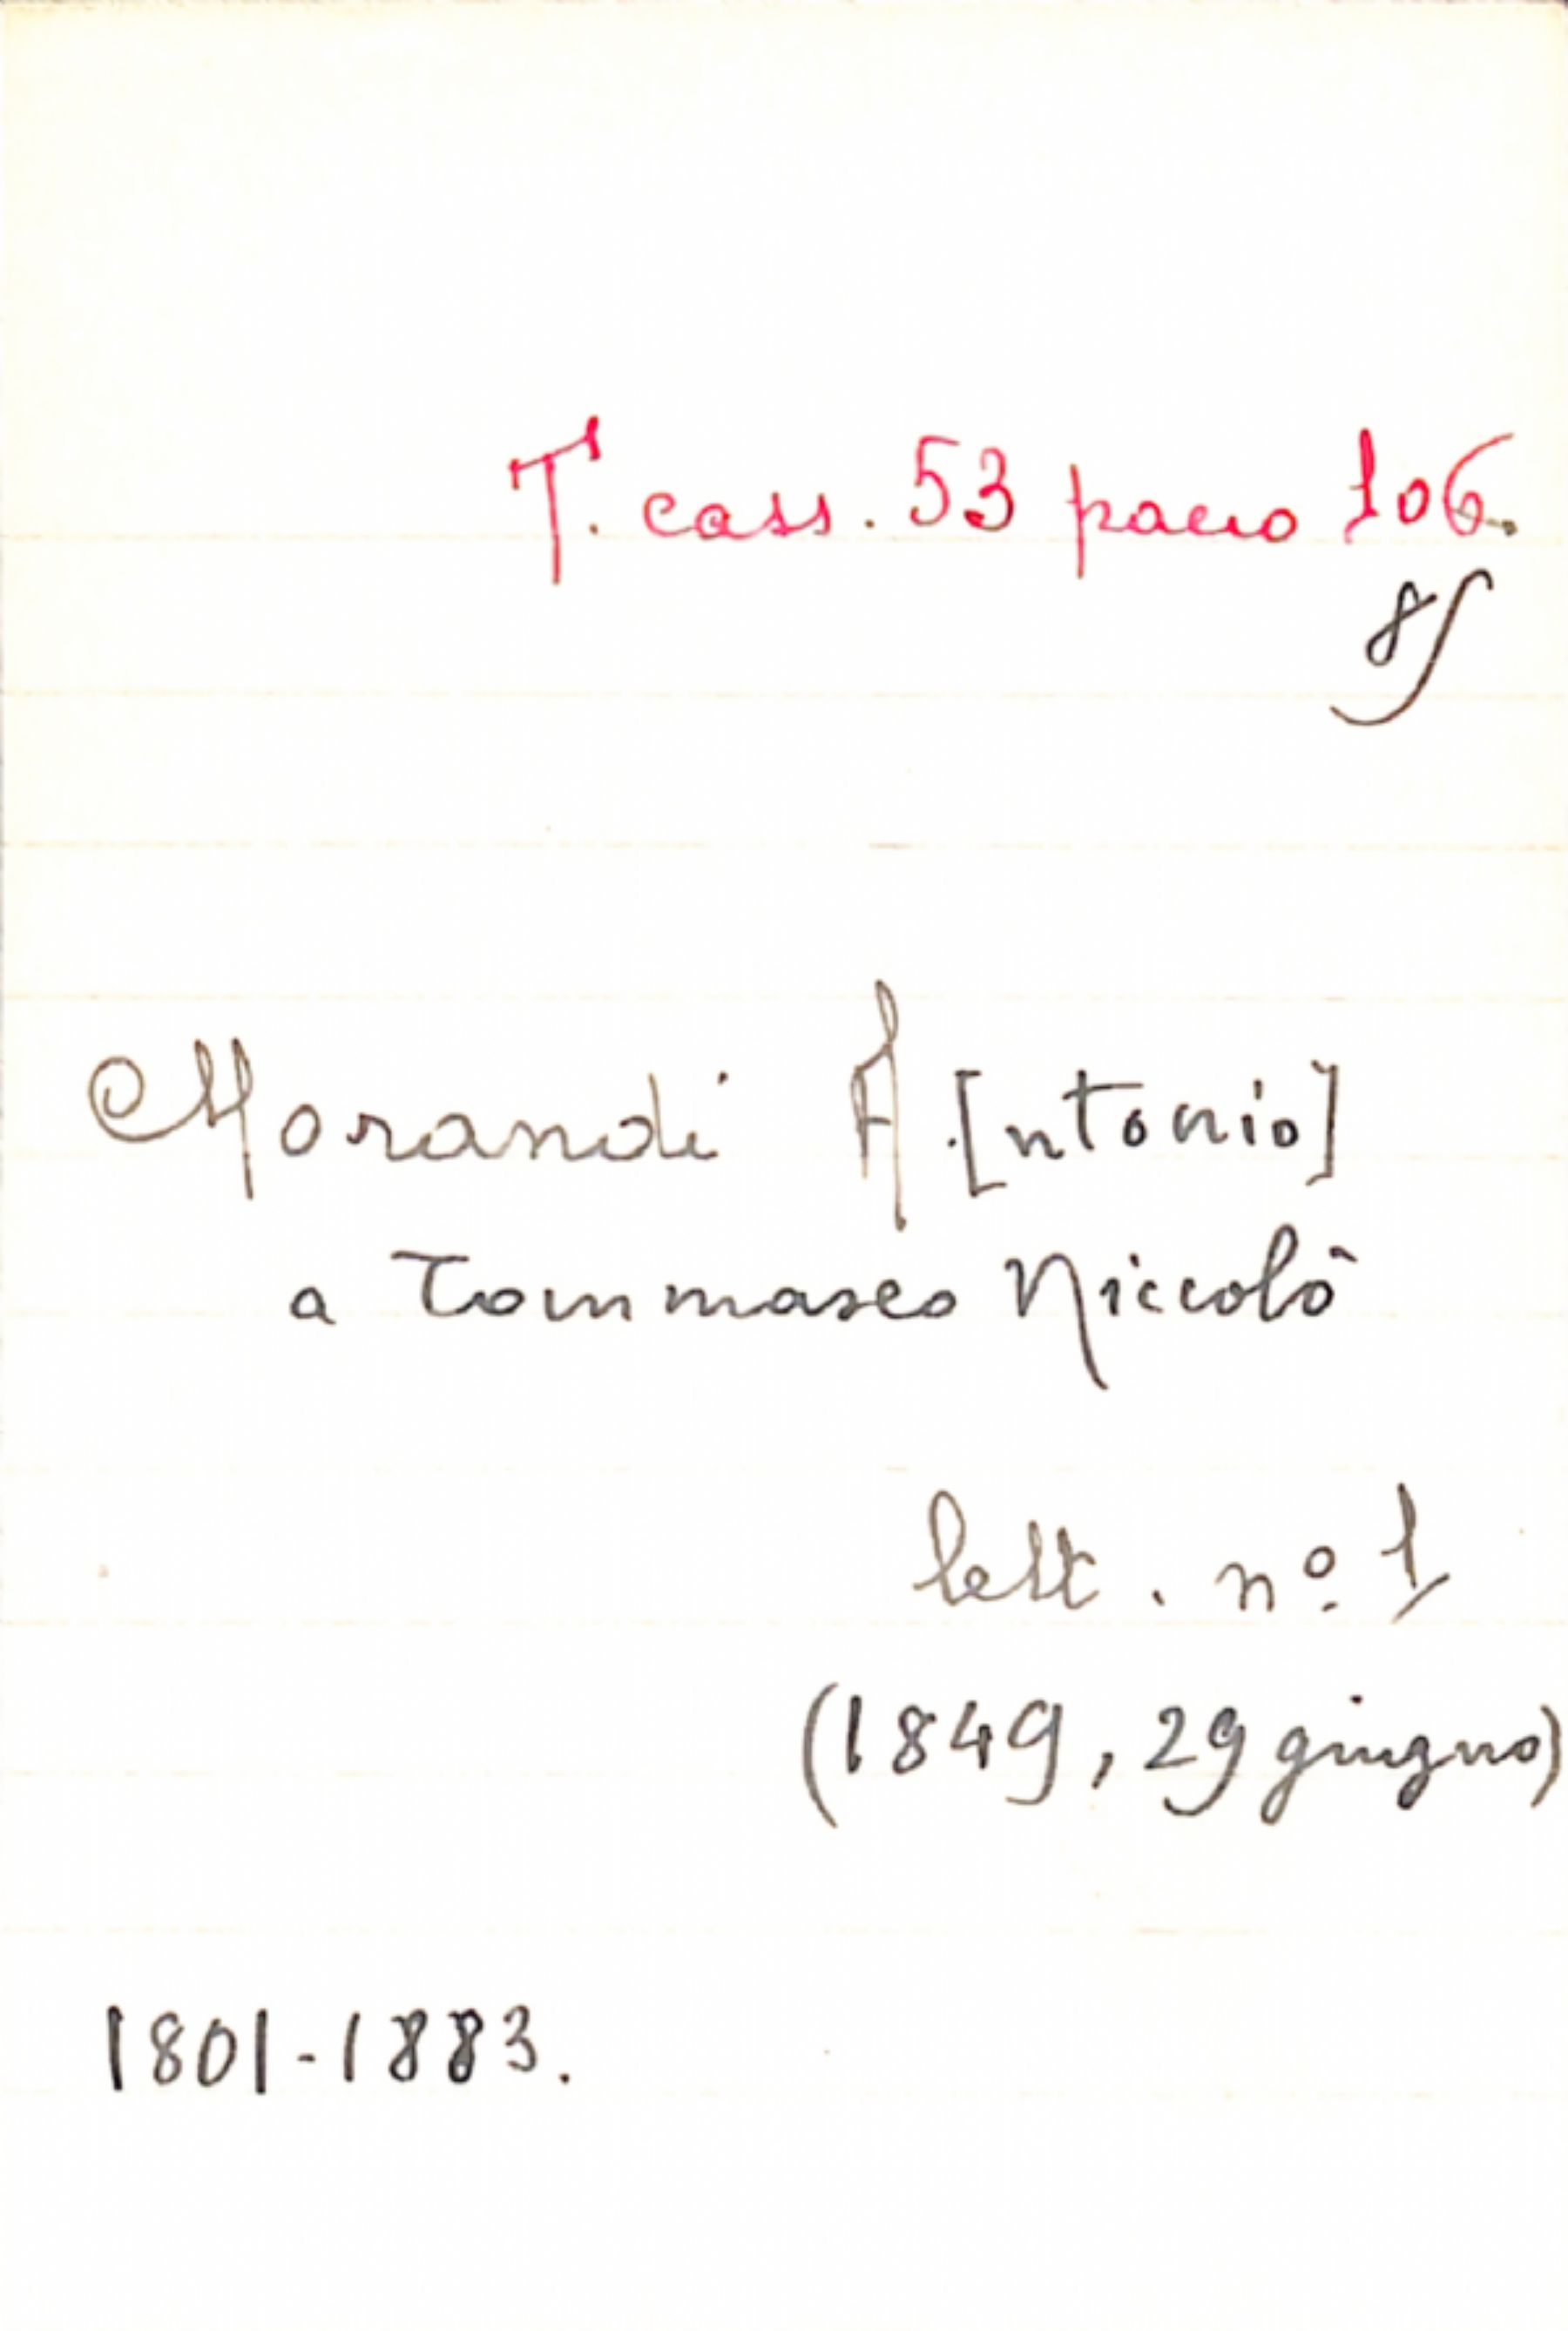 T. cass. 53 pacco 106.
8
Morandi A.[ntonio]
a Tommaseo Niccolò
lett. nº 1
(1849, 29 giugno)
1801-1883.